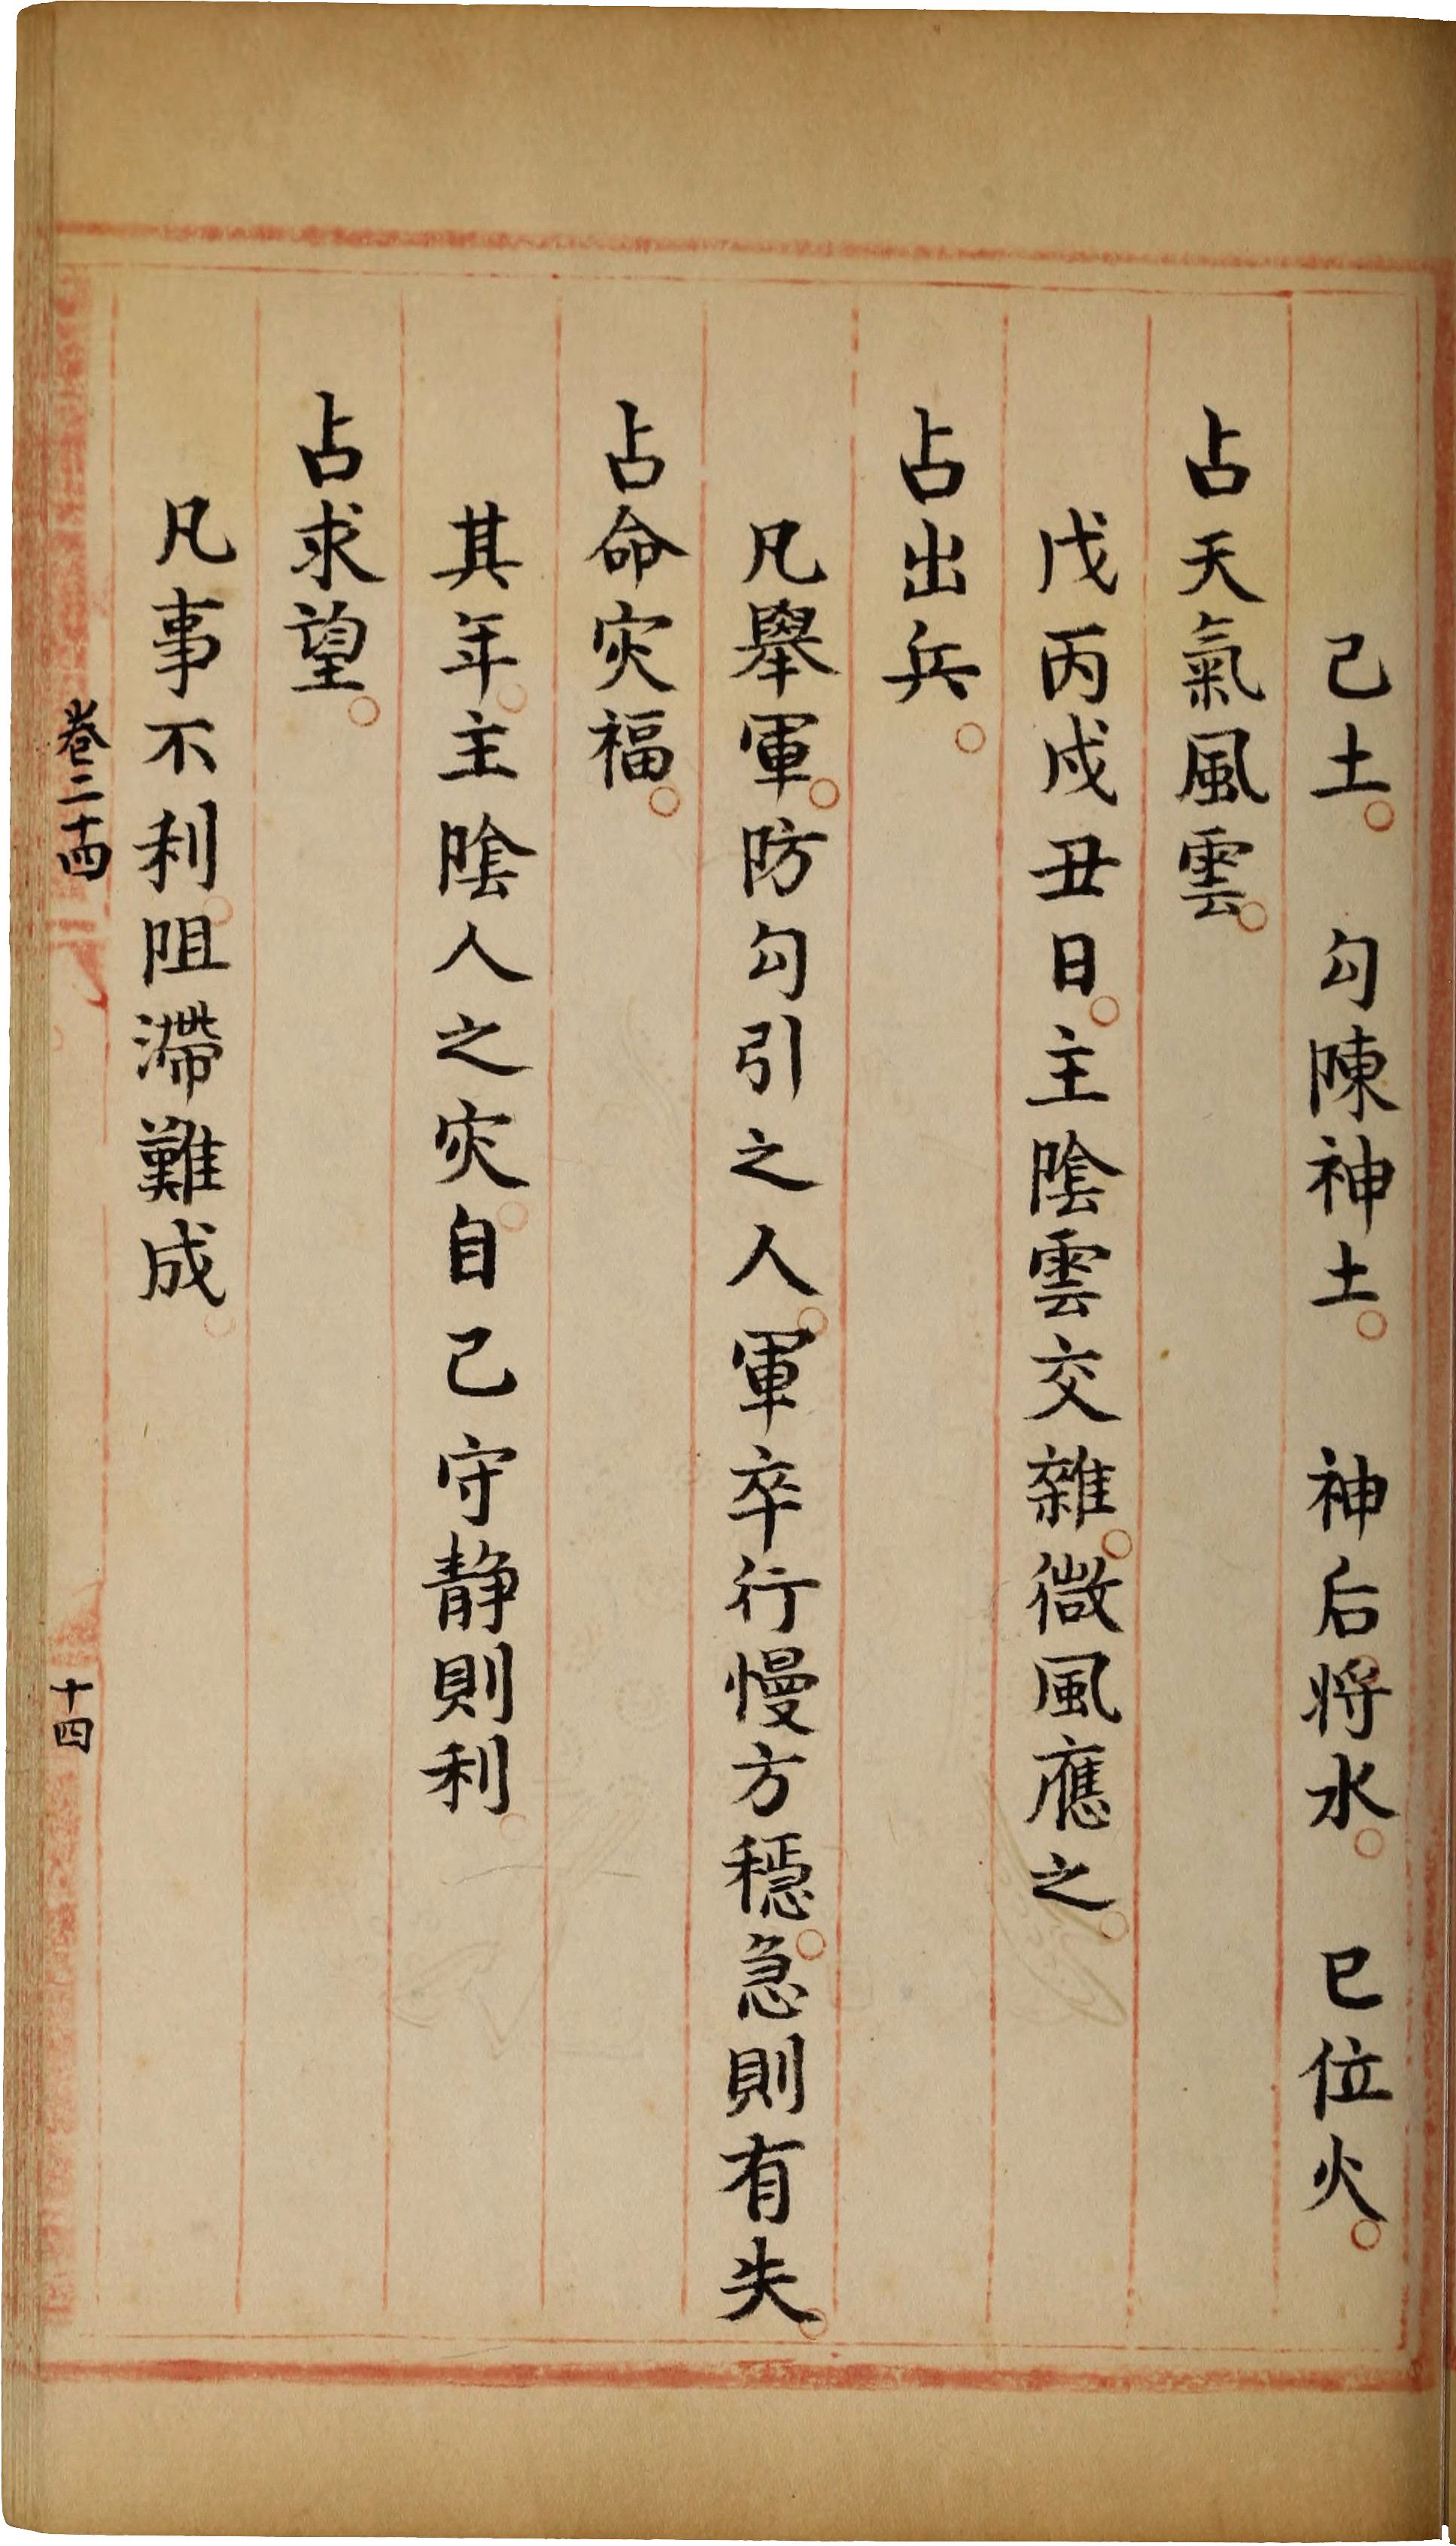 己土。　勾陳神土。　神后將水。　巳位火。
占天氣風雲。
戊丙戌丑日。主陰雲交雜。微風應之。
占出兵。
凡舉軍。防勾引之人。軍卒行慢方穩。急則有失。
占命灾福。
其年。主陰人之灾。自己守静則利。
占求望。
凡事不利。阻滯難成。
卷二十四
十四